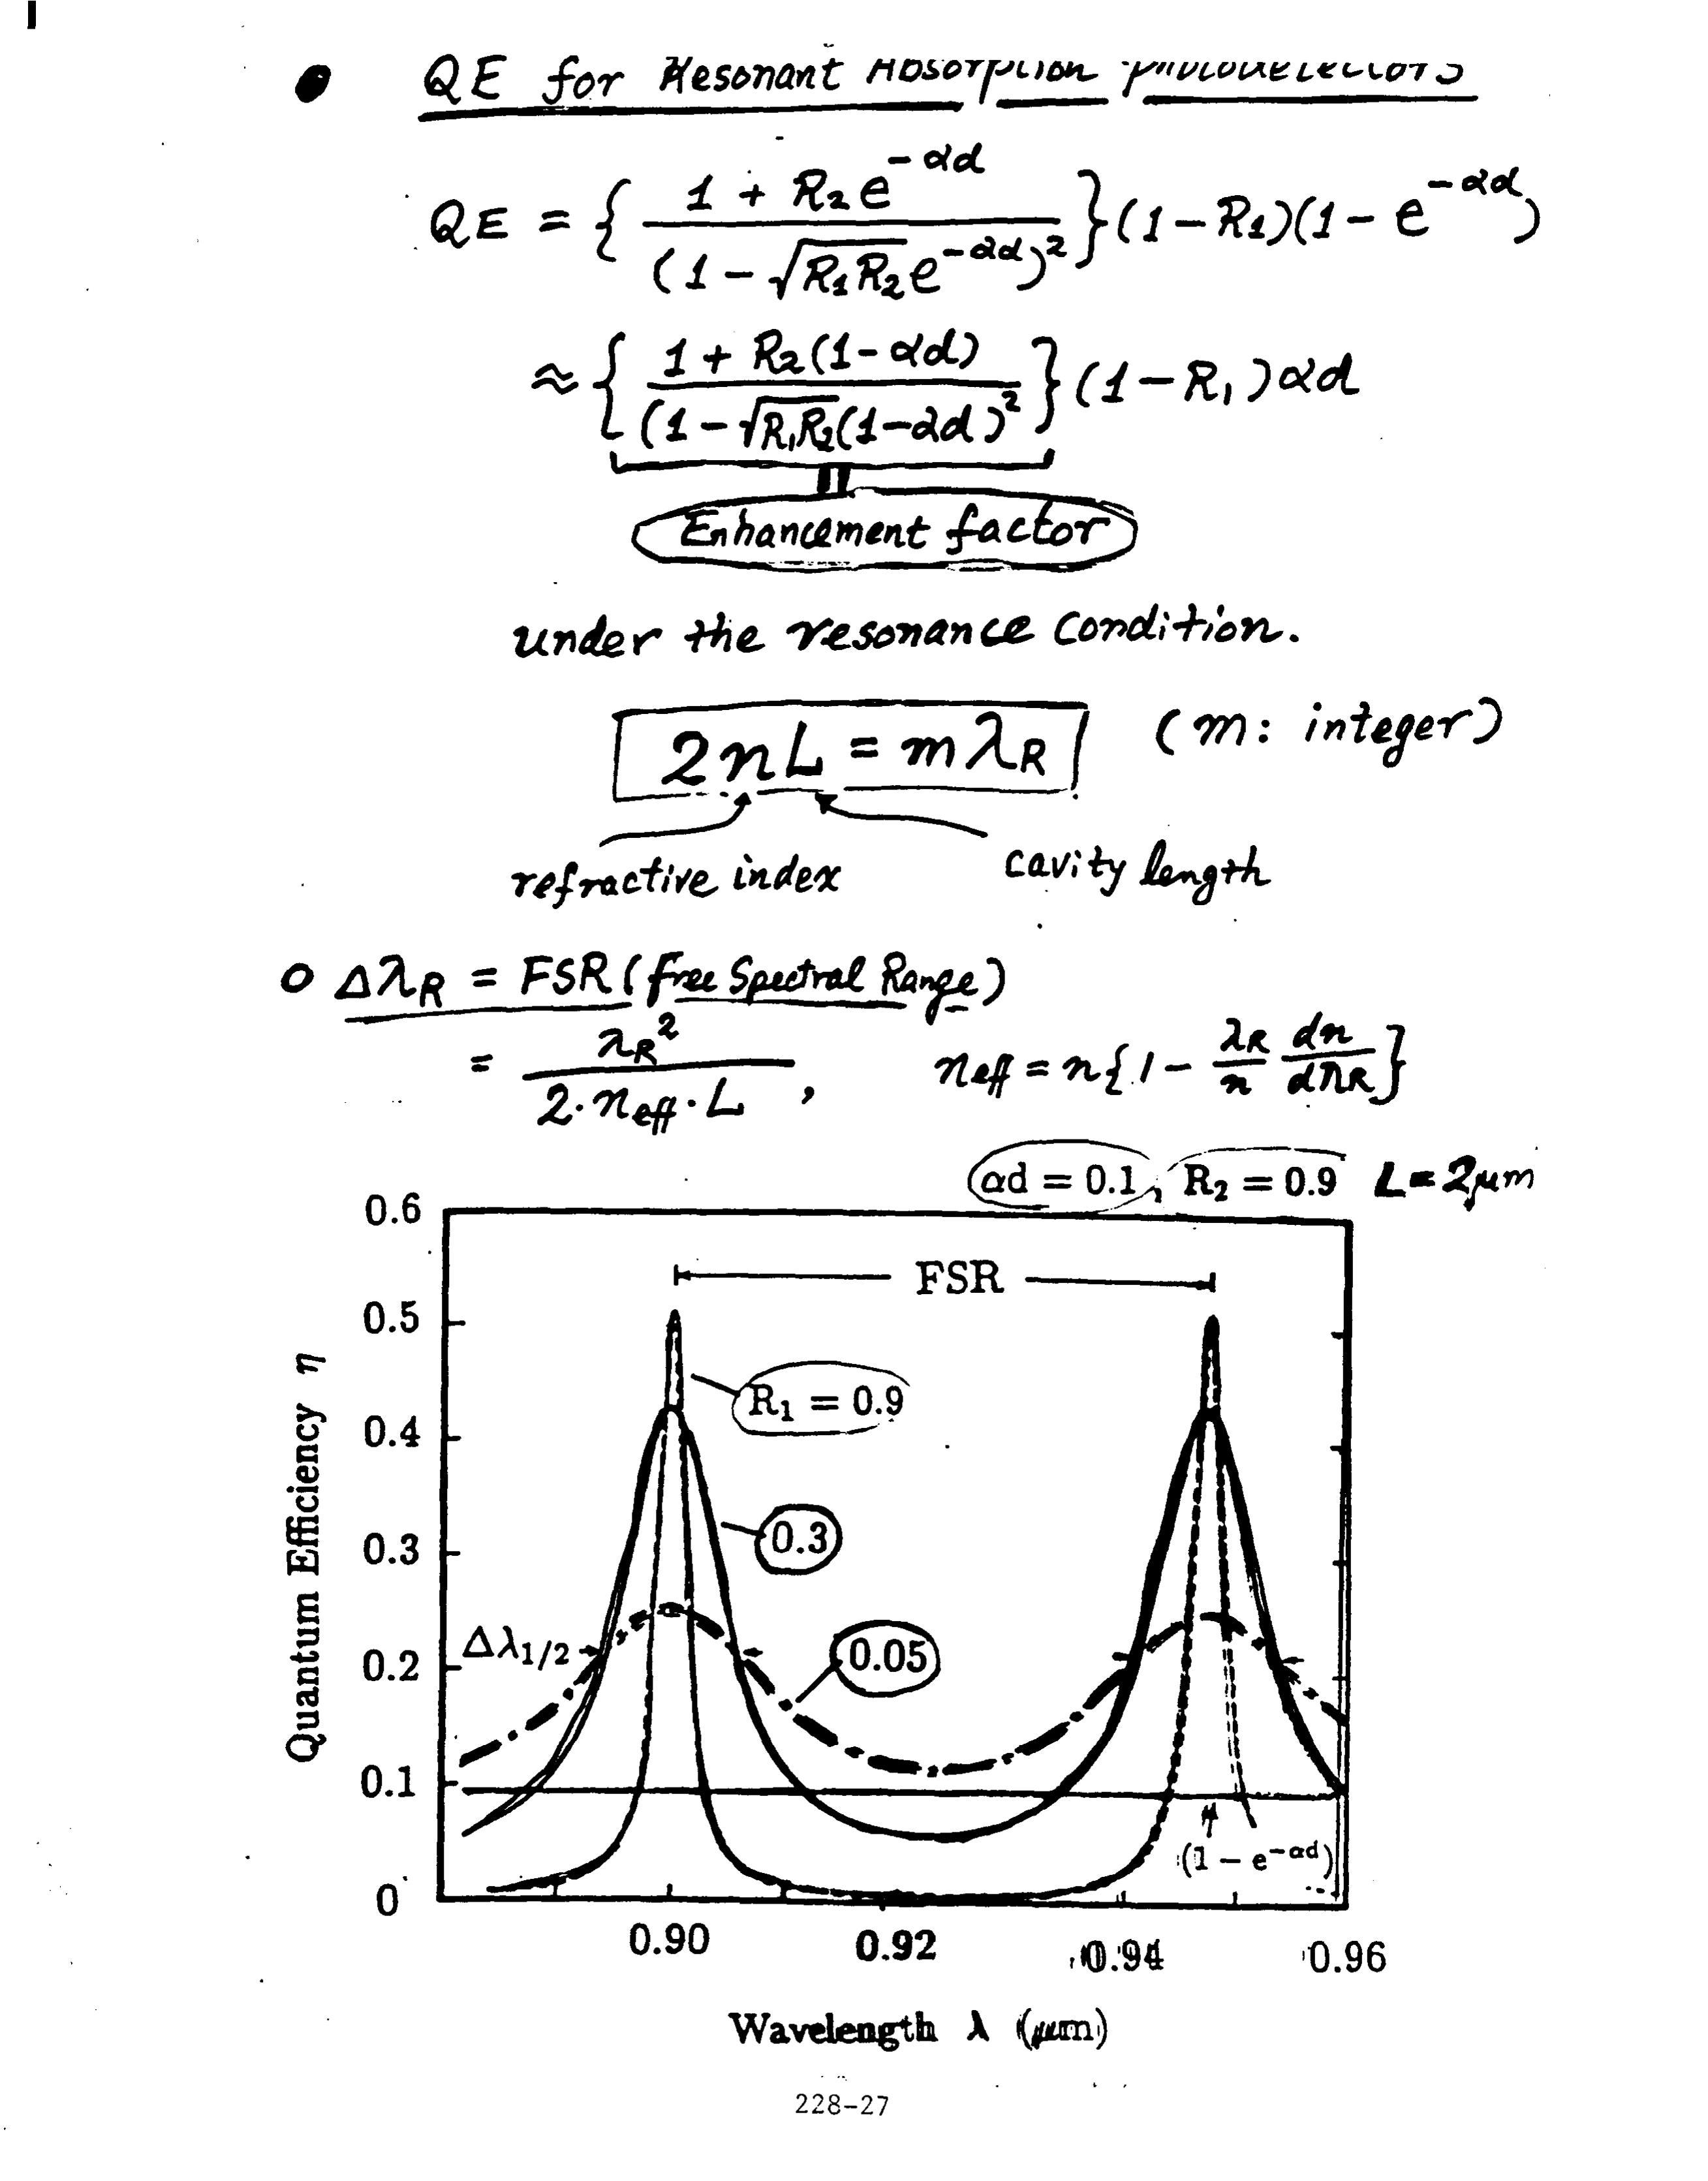 ● QE for Resonant Absorption photodetectors
QE = { (1 + R₂e^{-αd}) / (1 - √(R₁R₂)e^{-αd})² } (1 - R₁)(1 - e^{-αd})
≈ { (1 + R₂(1-αd)) / (1 - √(R₁R₂)(1-αd)² } (1 - R₁)αd
Enhancement factor
under the resonance condition.
2nL = mλ_R (m: integer)
refractive index cavity length
○ Δλ_R = FSR (Free Spectral Range)
= λ_R² / (2·n_eff·L) , n_eff = n{1 - (λ_R/n) (dn/dλ_R)}
αd = 0.1, R₂ = 0.9 L = 2μm
0.6
FSR
0.5
R₁ = 0.9
0.4
0.3
0.3
Δλ₁/₂
0.2
0.05
0.1
(1 - e^{-αd})
0
Quantum Efficiency η
0.90 0.92 0.94 0.96
Wavelength λ (μm)
228-27